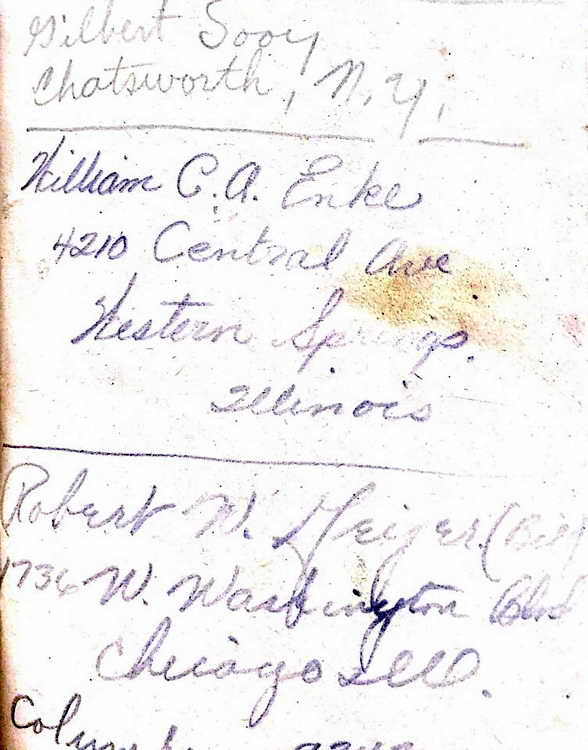 Gilbert Sooy
Chatsworth, N.Y.
William C.A. Enke
4210 Central Ave
Western Springs.
Illinois
Robert W. Geiger (Bill)
1736 W. Washington Blvd
Chicago Ill.